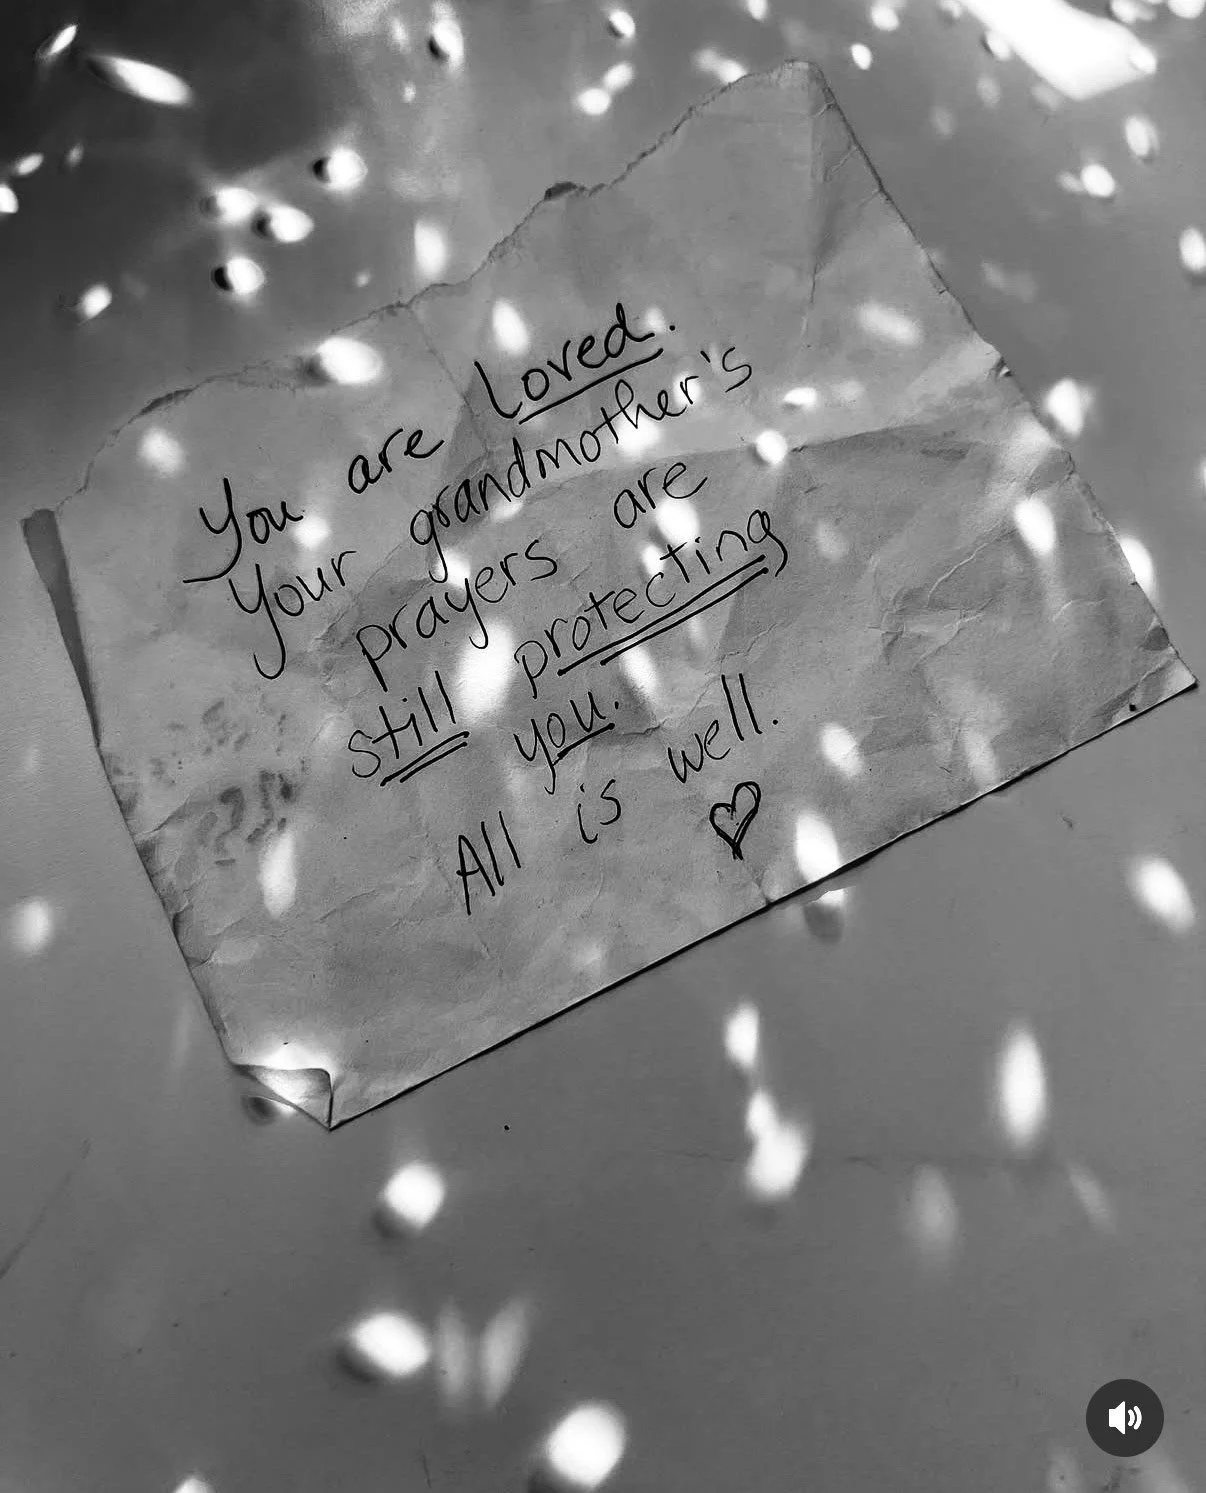 You are Loved.
Your grandmother's
prayers are
still protecting
you.
All is well.